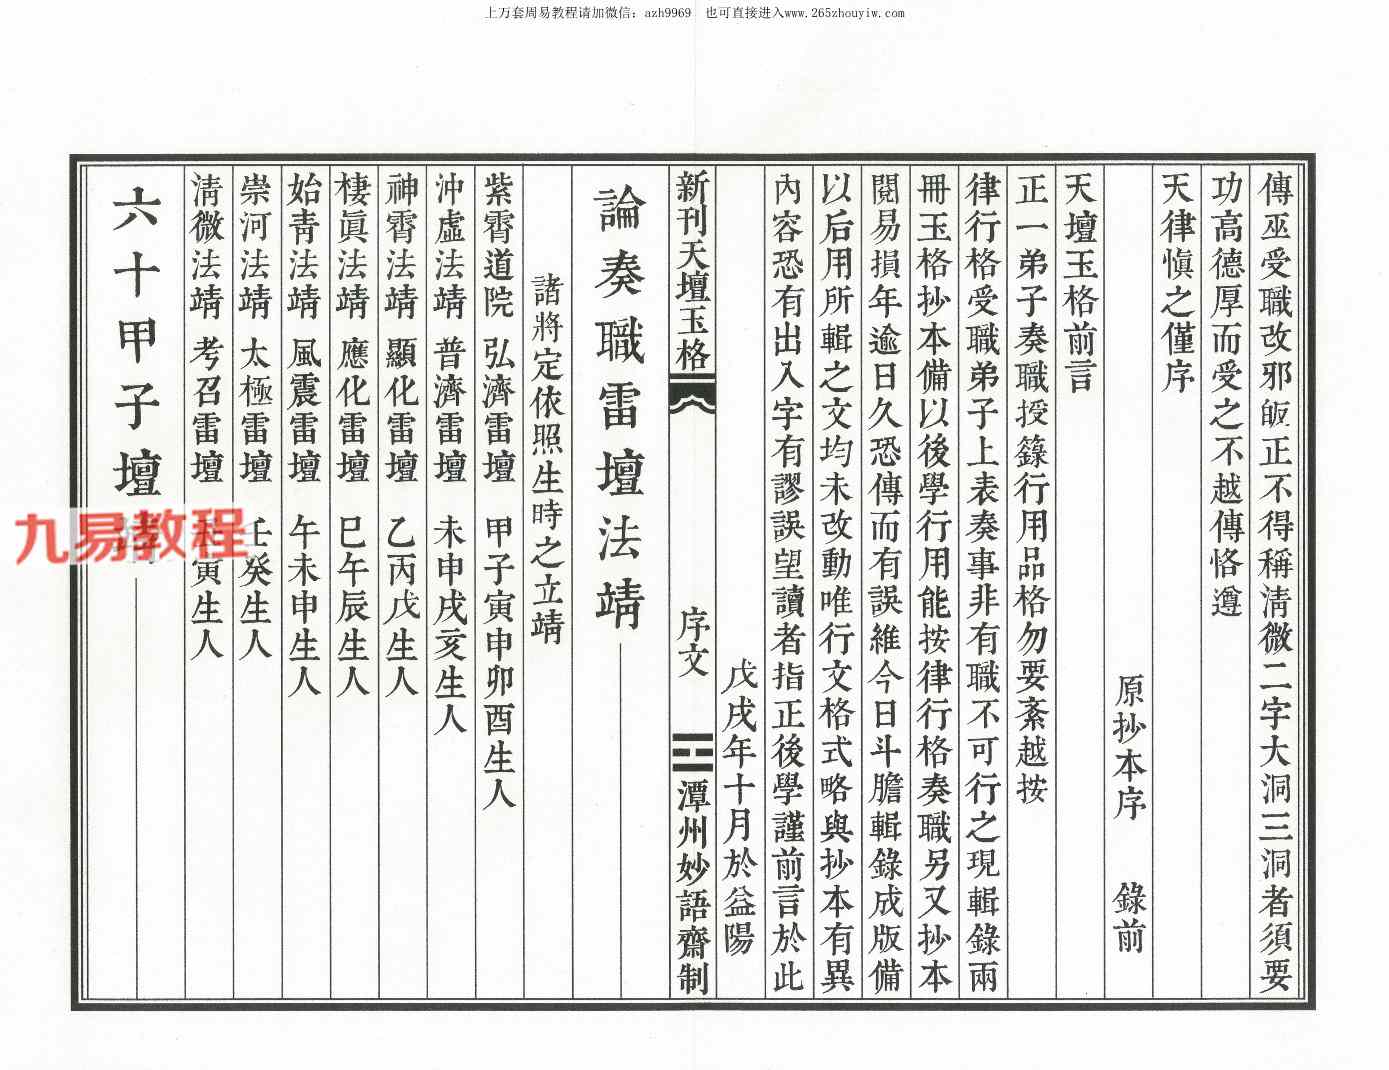 上万套周易教程请加微信：azh9969　也可直接进入www.265zhouyiw.com
傳巫受職改邪皈正不得稱清微二字大洞三洞者須要
功高德厚而受之不越傳恪遵
天律慎之僅序
原抄本序　錄前
天壇玉格前言
正一弟子奏職授籙行用品格勿要紊越按
律行格受職弟子上表奏事非有職不可行之現輯錄兩
冊玉格抄本備以後學行用能按律行格奏職另又抄本
閱易損年逾日久恐傳而有誤維今日斗膽輯錄成版備
以后用所輯之文均未改動唯行文格式略與抄本有異
內容恐有出入字有謬誤望讀者指正後學謹前言於此
戊戌年十月於益陽
新刊天壇玉格　序文　潭州妙語齋制
論奏職雷壇法靖
諸將定依照生時之立靖
紫霄道院　弘濟雷壇　甲子寅申卯酉生人
沖虛法靖　普濟雷壇　未申戌亥生人
神霄法靖　顯化雷壇　乙丙戊生人
棲眞法靖　應化雷壇　巳午辰生人
始青法靖　風震雷壇　午未申生人
崇河法靖　太極雷壇　壬癸生人
清微法靖　考召雷壇　寅生人
六十甲子壇
九易教程